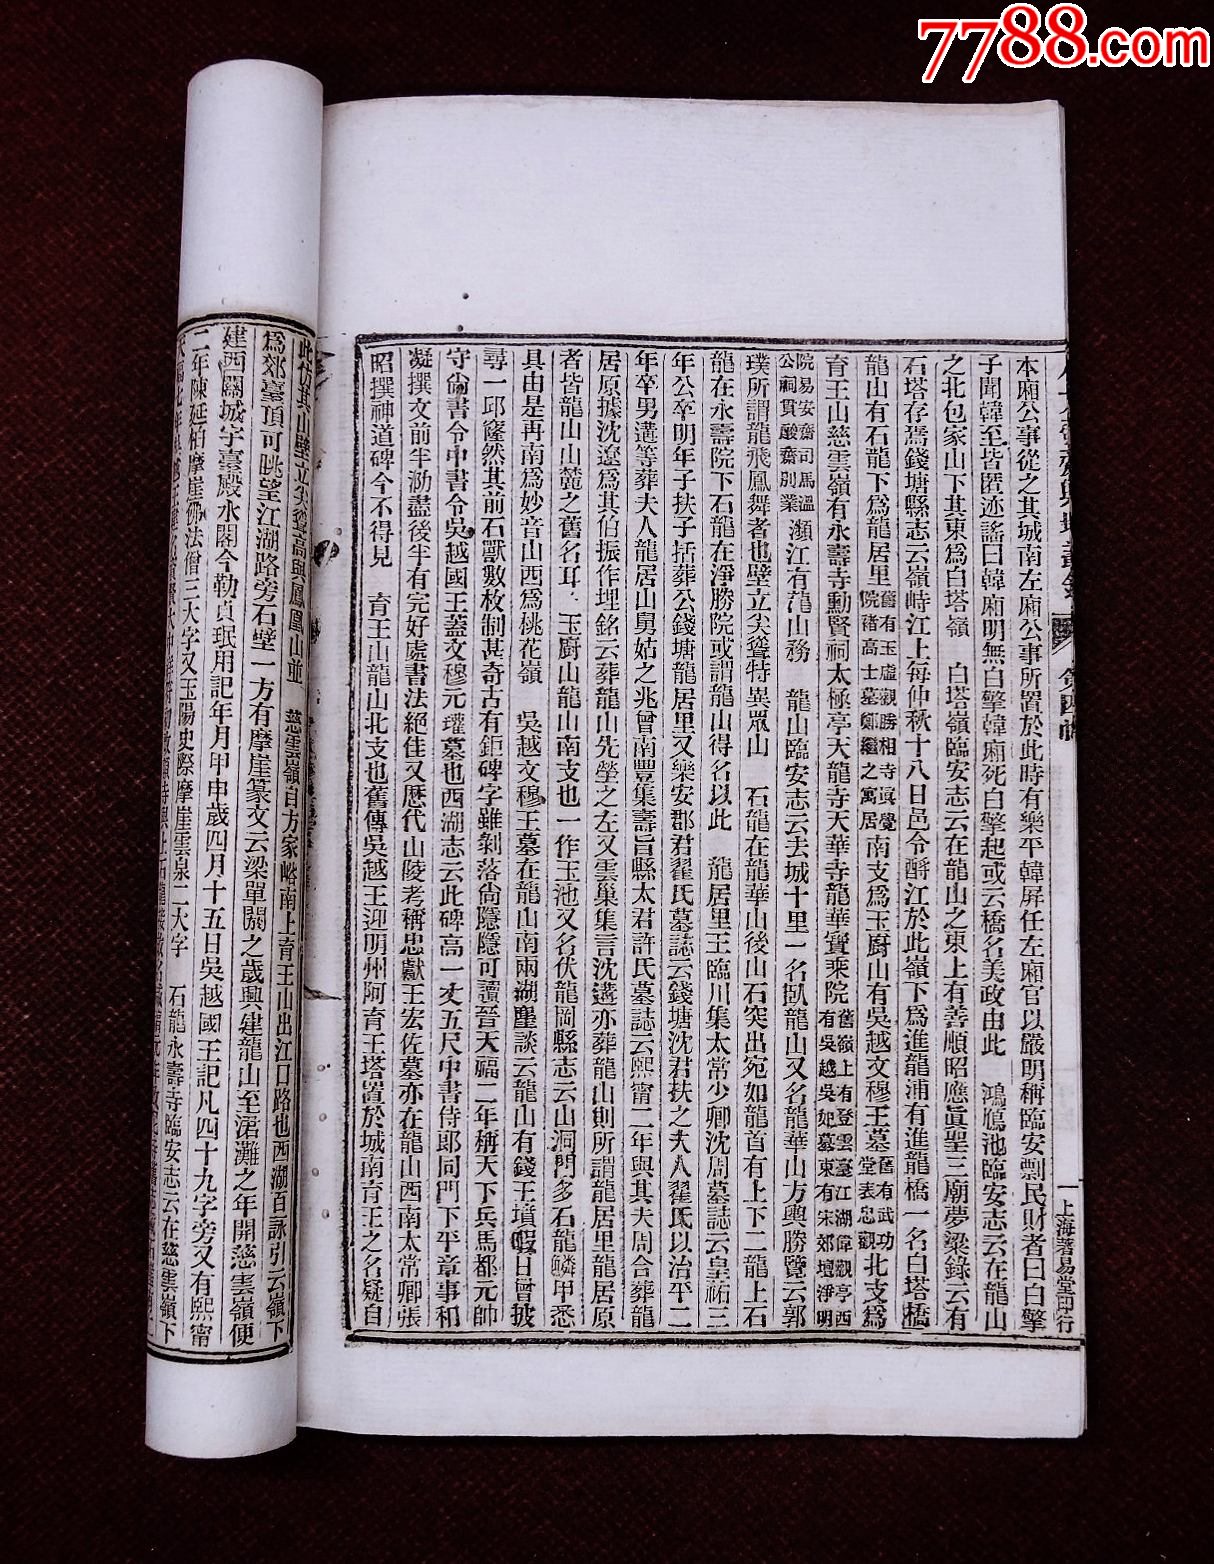 7788.com
上海著易堂印行
本廂公事從之其城南左廂公事所置於此時有樂平韓屏任左廂官以嚴明稱臨安剽民財者曰白擎
子聞韓至皆匿迹謠曰韓廂明無白擎韓廂死白擎起或云橋名美政由此　鴻鴈池臨安志云在龍山
之北包家山下其東為白塔嶺　白塔嶺臨安志云在龍山之東上有善順昭應眞聖三廟夢粱錄云有
石塔存焉錢塘縣志云嶺峙江上每仲秋十八日邑令酹江於此嶺下為進龍浦有進龍橋一名白塔橋
龍山有石龍下為龍居里舊有玉虛觀勝相寺眞覺院禇高士墓鄭繼之寓居南支為玉廚山有吳越文穆王墓舊有武功堂表忠觀北支為
育王山慈雲嶺有永壽寺勳賢祠太極亭天龍寺天華寺龍華寶乘院舊嶺上有登雲臺江湖偉觀亭西有吳越吳妃墓東有宋郊壇淨明
院易安齋司馬溫公祠貫酸齋別業瀕江有龍山務　龍山臨安志云去城十里一名臥龍山又名龍華山方輿勝覽云郭
璞所謂龍飛鳳舞者也壁立尖聳特異眾山　石龍在龍華山後山石突出宛如龍首有上下二龍上石
龍在永壽院下石龍在淨勝院或謂龍山得名以此　龍居里王臨川集太常少卿沈周墓誌云皇祐三
年公卒明年子扶子括葬公錢塘龍居里又樂安郡君翟氏墓誌云錢塘沈君扶之夫人翟氏以治平二
年卒男遘等葬夫人龍居山舅姑之兆曾南豐集壽昌縣太君許氏墓誌云熙甯二年與其夫周合葬龍
居原據沈遼為其伯振作埋銘云葬龍山先塋之左又雲巢集言沈遘亦葬龍山則所謂龍居里龍居原
者皆龍山山麓之舊名耳　玉廚山龍山南支也一作玉池又名伏龍岡縣志云山洞門多石龍鱗甲悉
具由是再南為妙音山西為桃花嶺　吳越文穆王墓在龍山南兩湖麈談云龍山有錢王墳暇日曾披
尋一邱窿然其前石獸數枚制甚奇古有鉅碑字雖剝落尙隱隱可讀晉天福二年稱天下兵馬都元帥
守尙書令中書令吳越國王蓋文穆元瓘墓也西湖志云此碑高一丈五尺中書侍郎同門下平章事和
凝撰文前半泐盡後半有完好處書法絕佳又歷代山陵考稱忠獻王宏佐墓亦在龍山西南太常卿張
昭撰神道碑今不得見　育王山龍山北支也舊傳吳越王迎明州阿育王塔置於城南育王之名疑自
此仿其山壁立尖聳高與鳳凰山並　慈雲嶺自方家峪南上育王山出江口路也西湖百詠引云嶺下
為郊臺頂可眺望江湖路旁石壁一方有摩崖篆文云梁單閼之歲興建龍山至涒灘之年開慈雲嶺便
建西關城宇臺殿水閣今勒貞珉用記年月甲申歲四月十五日吳越國王記凡四十九字旁又有熙甯
二年陳延柏摩崖佛法僧三大字又玉陽史際摩崖雲泉二大字　石龍永壽寺臨安志云在慈雲嶺下